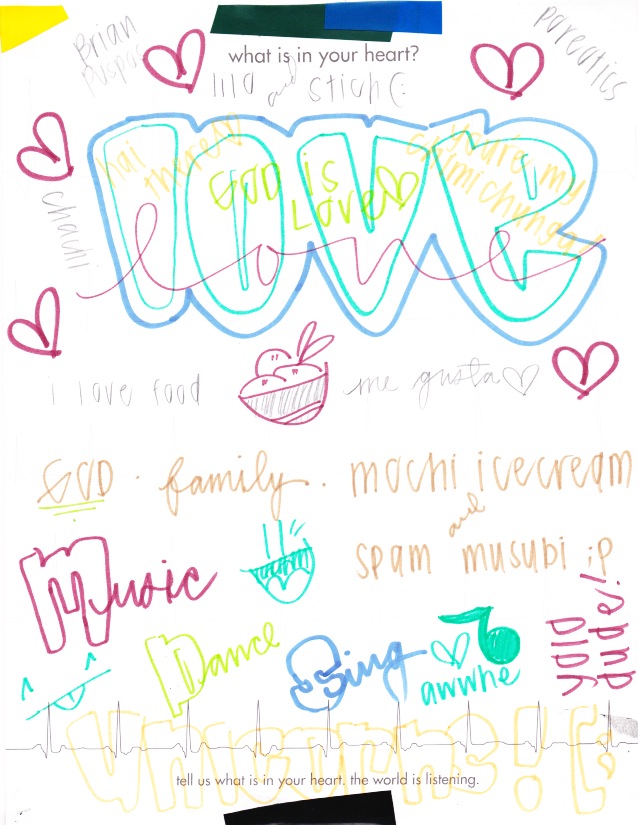 Brian
Puspos
what is in your heart?
poreotics
lilo and stich (:
hai
there!!
GOD is
Love
you are my
chimichunga!
love
love
chachi
i love food
me gusta
GOD · family · mochi icecream
and
spam musubi ;p
Music
Dance
Sing
awwhe
yolo
dude!
unicorns! (:
tell us what is in your heart. the world is listening.